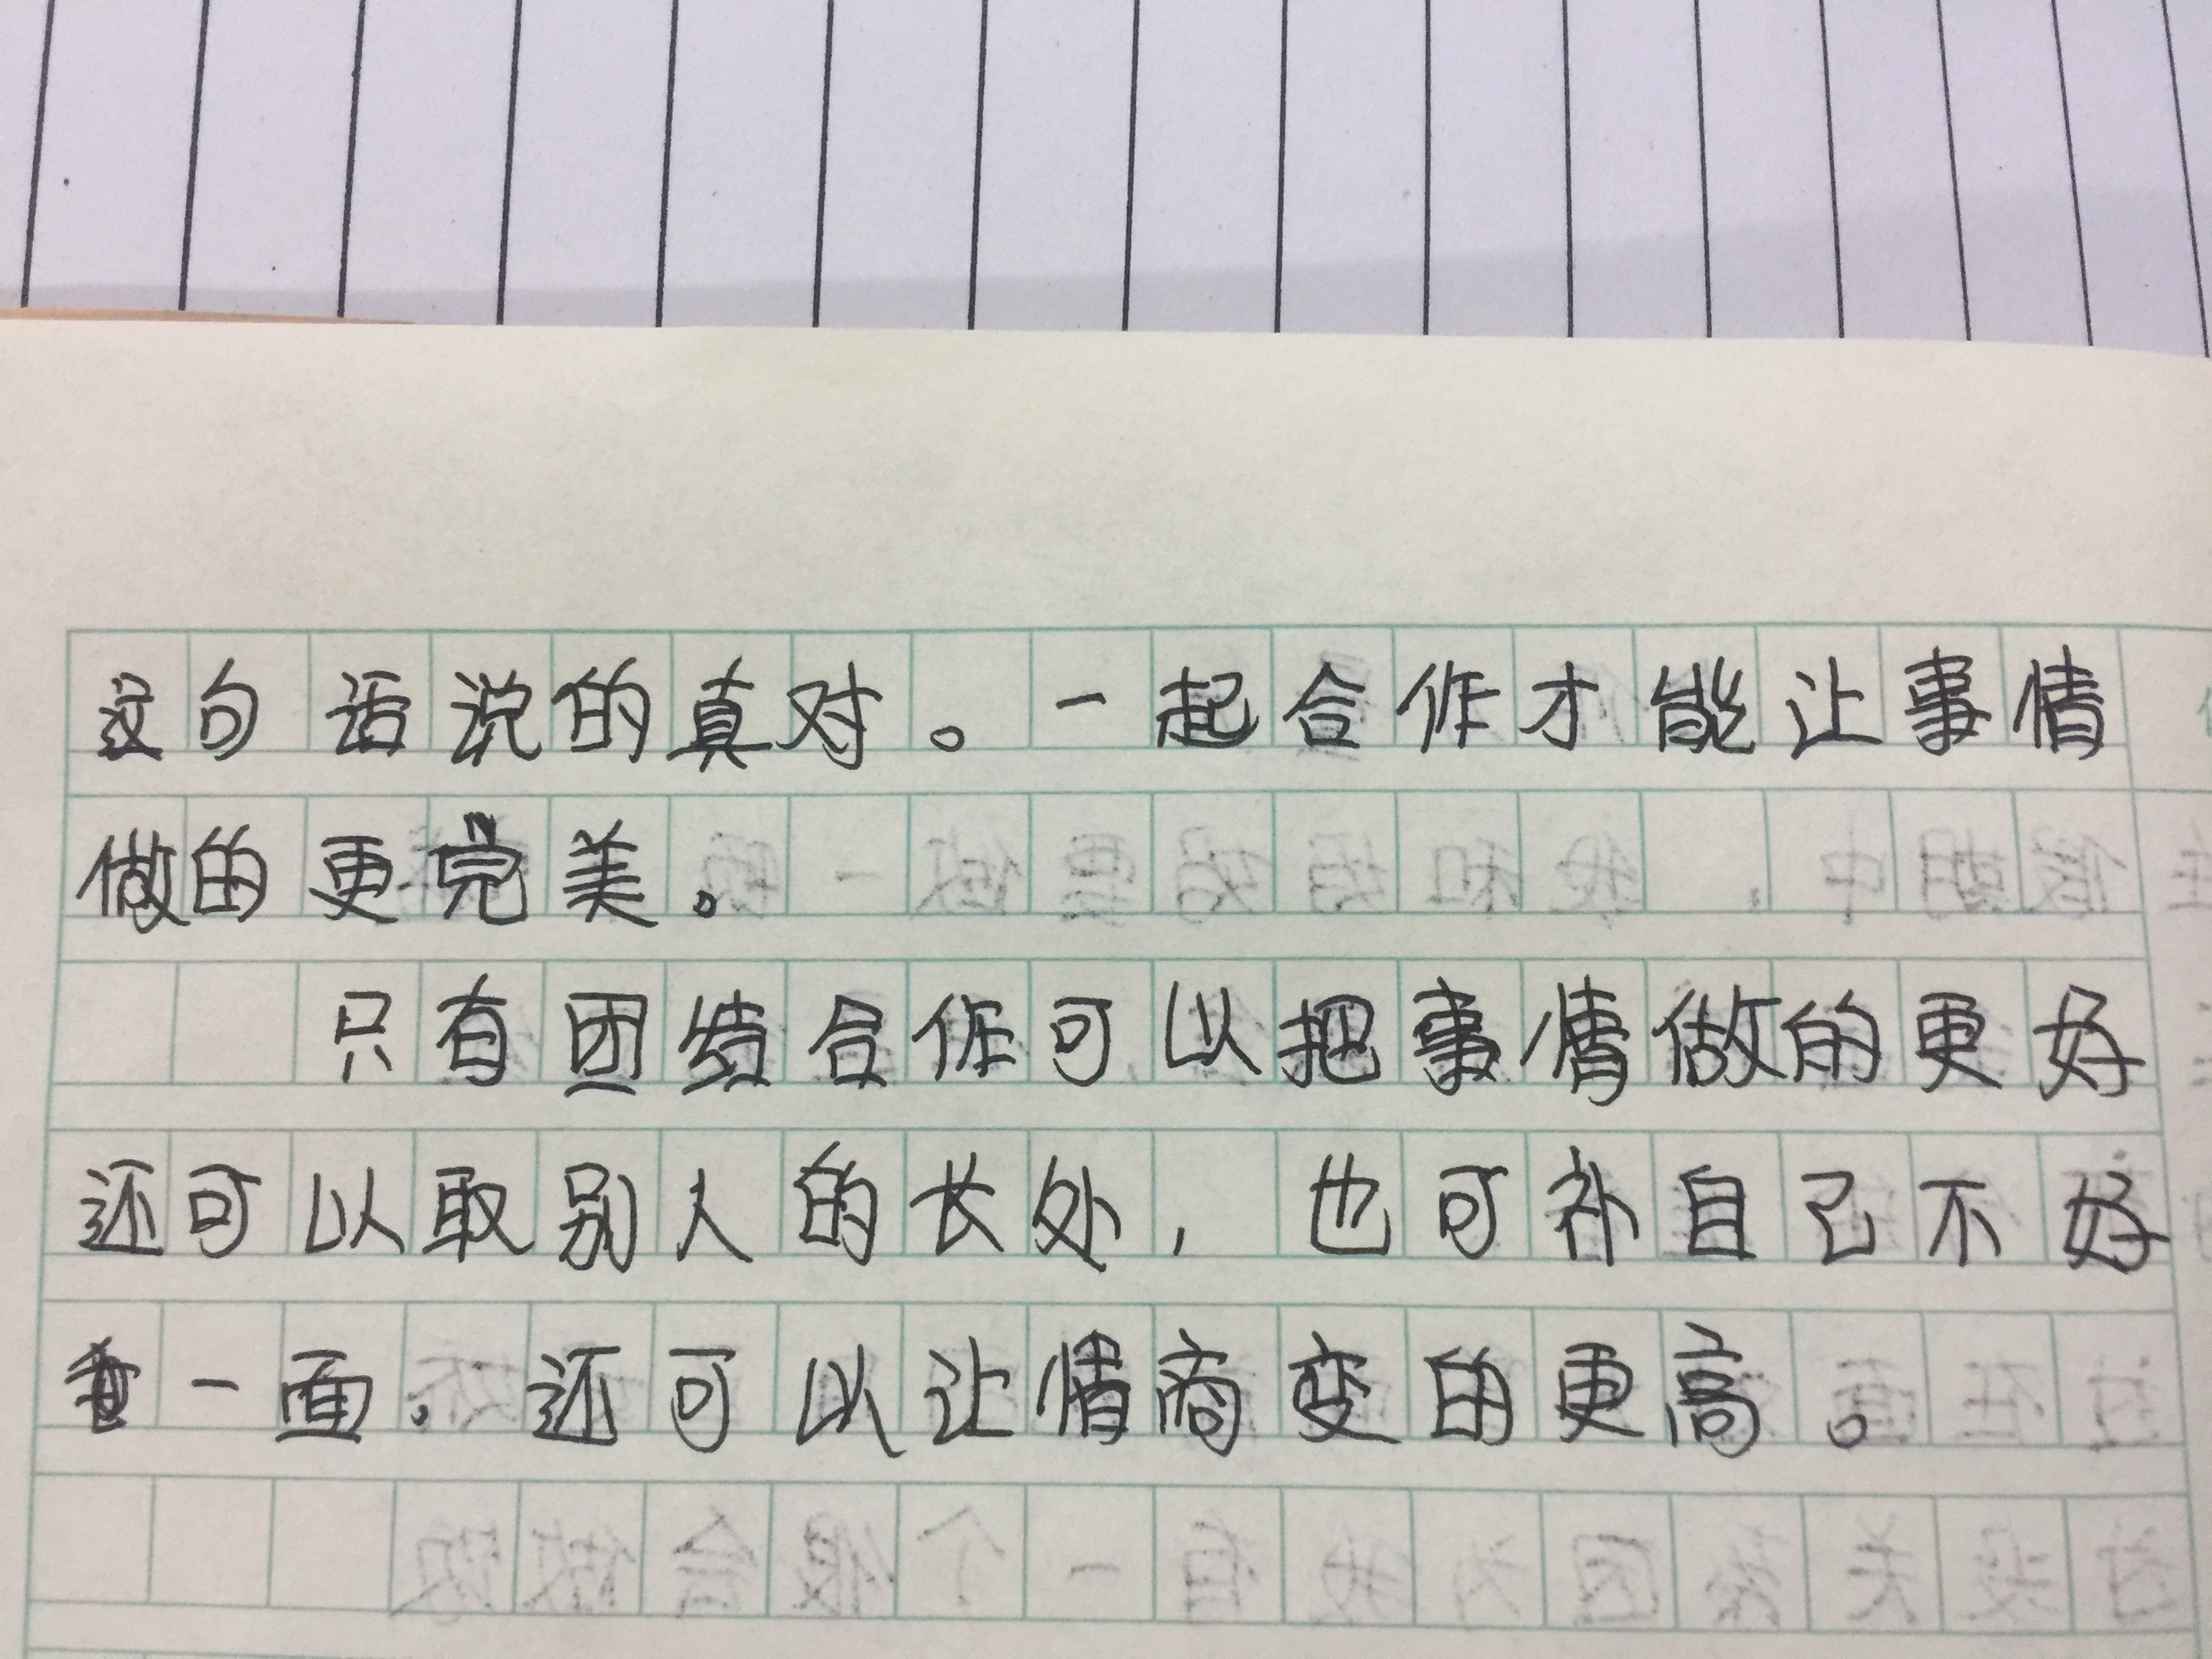 这句话说的真对。一起合作才能让事情
做的更完美。
只有团结合作可以把事情做的更好
还可以取别人的长处，也可补自己不好
一面。还可以让情商变的更高。